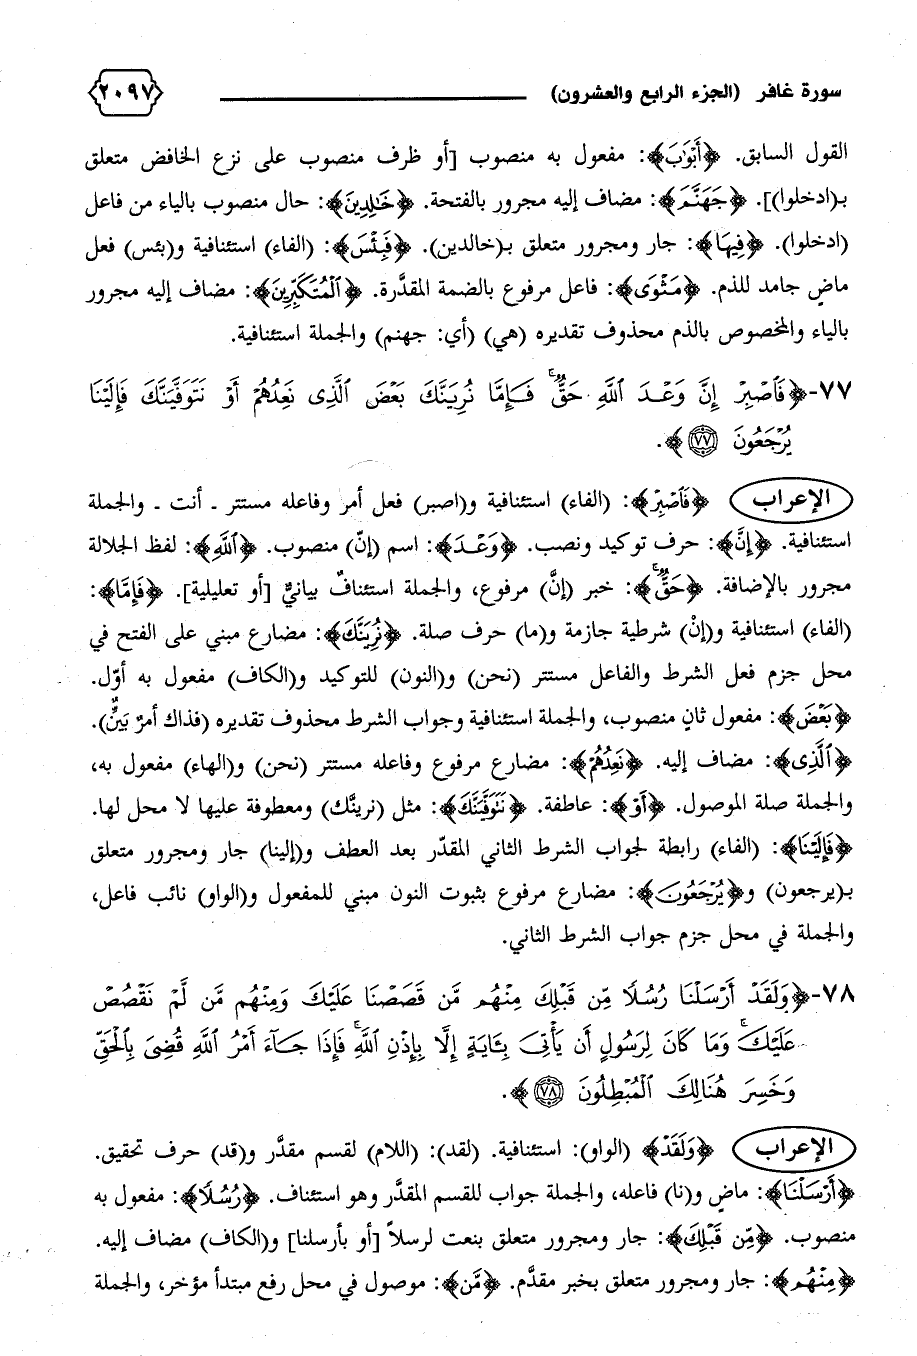 سورة غافر (الجزء الرابع والعشرون) ٢٠٩٧
القول السابق. ﴿أَبْوَٰبَ﴾: مفعول به منصوب [أو ظرف منصوب على نزع الخافض متعلق
بـ(ادخلوا)]. ﴿جَهَنَّمَ﴾: مضاف إليه مجرور بالفتحة. ﴿خَٰلِدِينَ﴾: حال منصوب بالياء من فاعل
(ادخلوا). ﴿فِيهَا﴾: جار ومجرور متعلق بـ(خالدين). ﴿فَبِئْسَ﴾: (الفاء) استئنافية و(بئس) فعل
ماضٍ جامد للذم. ﴿مَثْوَى﴾: فاعل مرفوع بالضمة المقدَّرة. ﴿ٱلْمُتَكَبِّرِينَ﴾: مضاف إليه مجرور
بالياء والمخصوص بالذم محذوف تقديره (هي) (أي: جهنم) والجملة استئنافية.
٧٧-﴿فَٱصْبِرْ إِنَّ وَعْدَ ٱللَّهِ حَقٌّ ۚ فَإِمَّا نُرِيَنَّكَ بَعْضَ ٱلَّذِى نَعِدُهُمْ أَوْ نَتَوَفَّيَنَّكَ فَإِلَيْنَا
يُرْجَعُونَ ۝٧٧﴾.
الإعراب ﴿فَٱصْبِرْ﴾: (الفاء) استئنافية و(اصبر) فعل أمر وفاعله مستتر ـ أنت ـ والجملة
استئنافية. ﴿إِنَّ﴾: حرف توكيد ونصب. ﴿وَعْدَ﴾: اسم (إنّ) منصوب. ﴿ٱللَّهِ﴾: لفظ الجلالة
مجرور بالإضافة. ﴿حَقٌّ ۚ﴾: خبر (إنَّ) مرفوع، والجملة استئنافٌ بيانيٌّ [أو تعليلية]. ﴿فَإِمَّا﴾:
(الفاء) استئنافية و(إنْ) شرطية جازمة و(ما) حرف صلة. ﴿نُرِيَنَّكَ﴾: مضارع مبني على الفتح في
محل جزم فعل الشرط والفاعل مستتر (نحن) و(النون) للتوكيد و(الكاف) مفعول به أوّل.
﴿بَعْضَ﴾: مفعول ثانٍ منصوب، والجملة استئنافية وجواب الشرط محذوف تقديره (فذاك أمرٌ بَيِّنٌ).
﴿ٱلَّذِى﴾: مضاف إليه. ﴿نَعِدُهُمْ﴾: مضارع مرفوع وفاعله مستتر (نحن) و(الهاء) مفعول به،
والجملة صلة الموصول. ﴿أَوْ﴾: عاطفة. ﴿نَتَوَفَّيَنَّكَ﴾: مثل (نرينَّك) ومعطوفة عليها لا محل لها.
﴿فَإِلَيْنَا﴾: (الفاء) رابطة لجواب الشرط الثاني المقدّر بعد العطف و(إلينا) جار ومجرور متعلق
بـ(يرجعون) و﴿يُرْجَعُونَ﴾: مضارع مرفوع بثبوت النون مبني للمفعول و(الواو) نائب فاعل،
والجملة في محل جزم جواب الشرط الثاني.
٧٨-﴿وَلَقَدْ أَرْسَلْنَا رُسُلًا مِّن قَبْلِكَ مِنْهُم مَّن قَصَصْنَا عَلَيْكَ وَمِنْهُم مَّن لَّمْ نَقْصُصْ
عَلَيْكَ ۗ وَمَا كَانَ لِرَسُولٍ أَن يَأْتِىَ بِـَٔايَةٍ إِلَّا بِإِذْنِ ٱللَّهِ ۚ فَإِذَا جَآءَ أَمْرُ ٱللَّهِ قُضِىَ بِٱلْحَقِّ
وَخَسِرَ هُنَالِكَ ٱلْمُبْطِلُونَ ۝٧٨﴾.
الإعراب ﴿وَلَقَدْ﴾ (الواو): استئنافية. (لقد): (اللام) لقسم مقدَّر و(قد) حرف تحقيق.
﴿أَرْسَلْنَا﴾: ماضٍ و(نا) فاعله، والجملة جواب للقسم المقدَّر وهو استئناف. ﴿رُسُلًا﴾: مفعول به
منصوب. ﴿مِّن قَبْلِكَ﴾: جار ومجرور متعلق بنعت لرسلاً [أو بأرسلنا] و(الكاف) مضاف إليه.
﴿مِنْهُم﴾: جار ومجرور متعلق بخبر مقدَّم. ﴿مَّن﴾: موصول في محل رفع مبتدأ مؤخر، والجملة